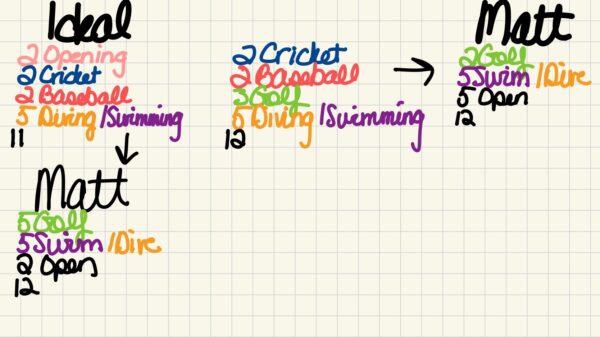 Ideal
2 Opening
2 Cricket
2 Baseball
5 Diving /Swimming
11
Matt
5 Golf
5 Swim /Dive
2 Open
12
2 Cricket
2 Baseball
3 Golf
5 Diving /Swimming
12
Matt
2 Golf
5 Swim /Dive
5 Open
12